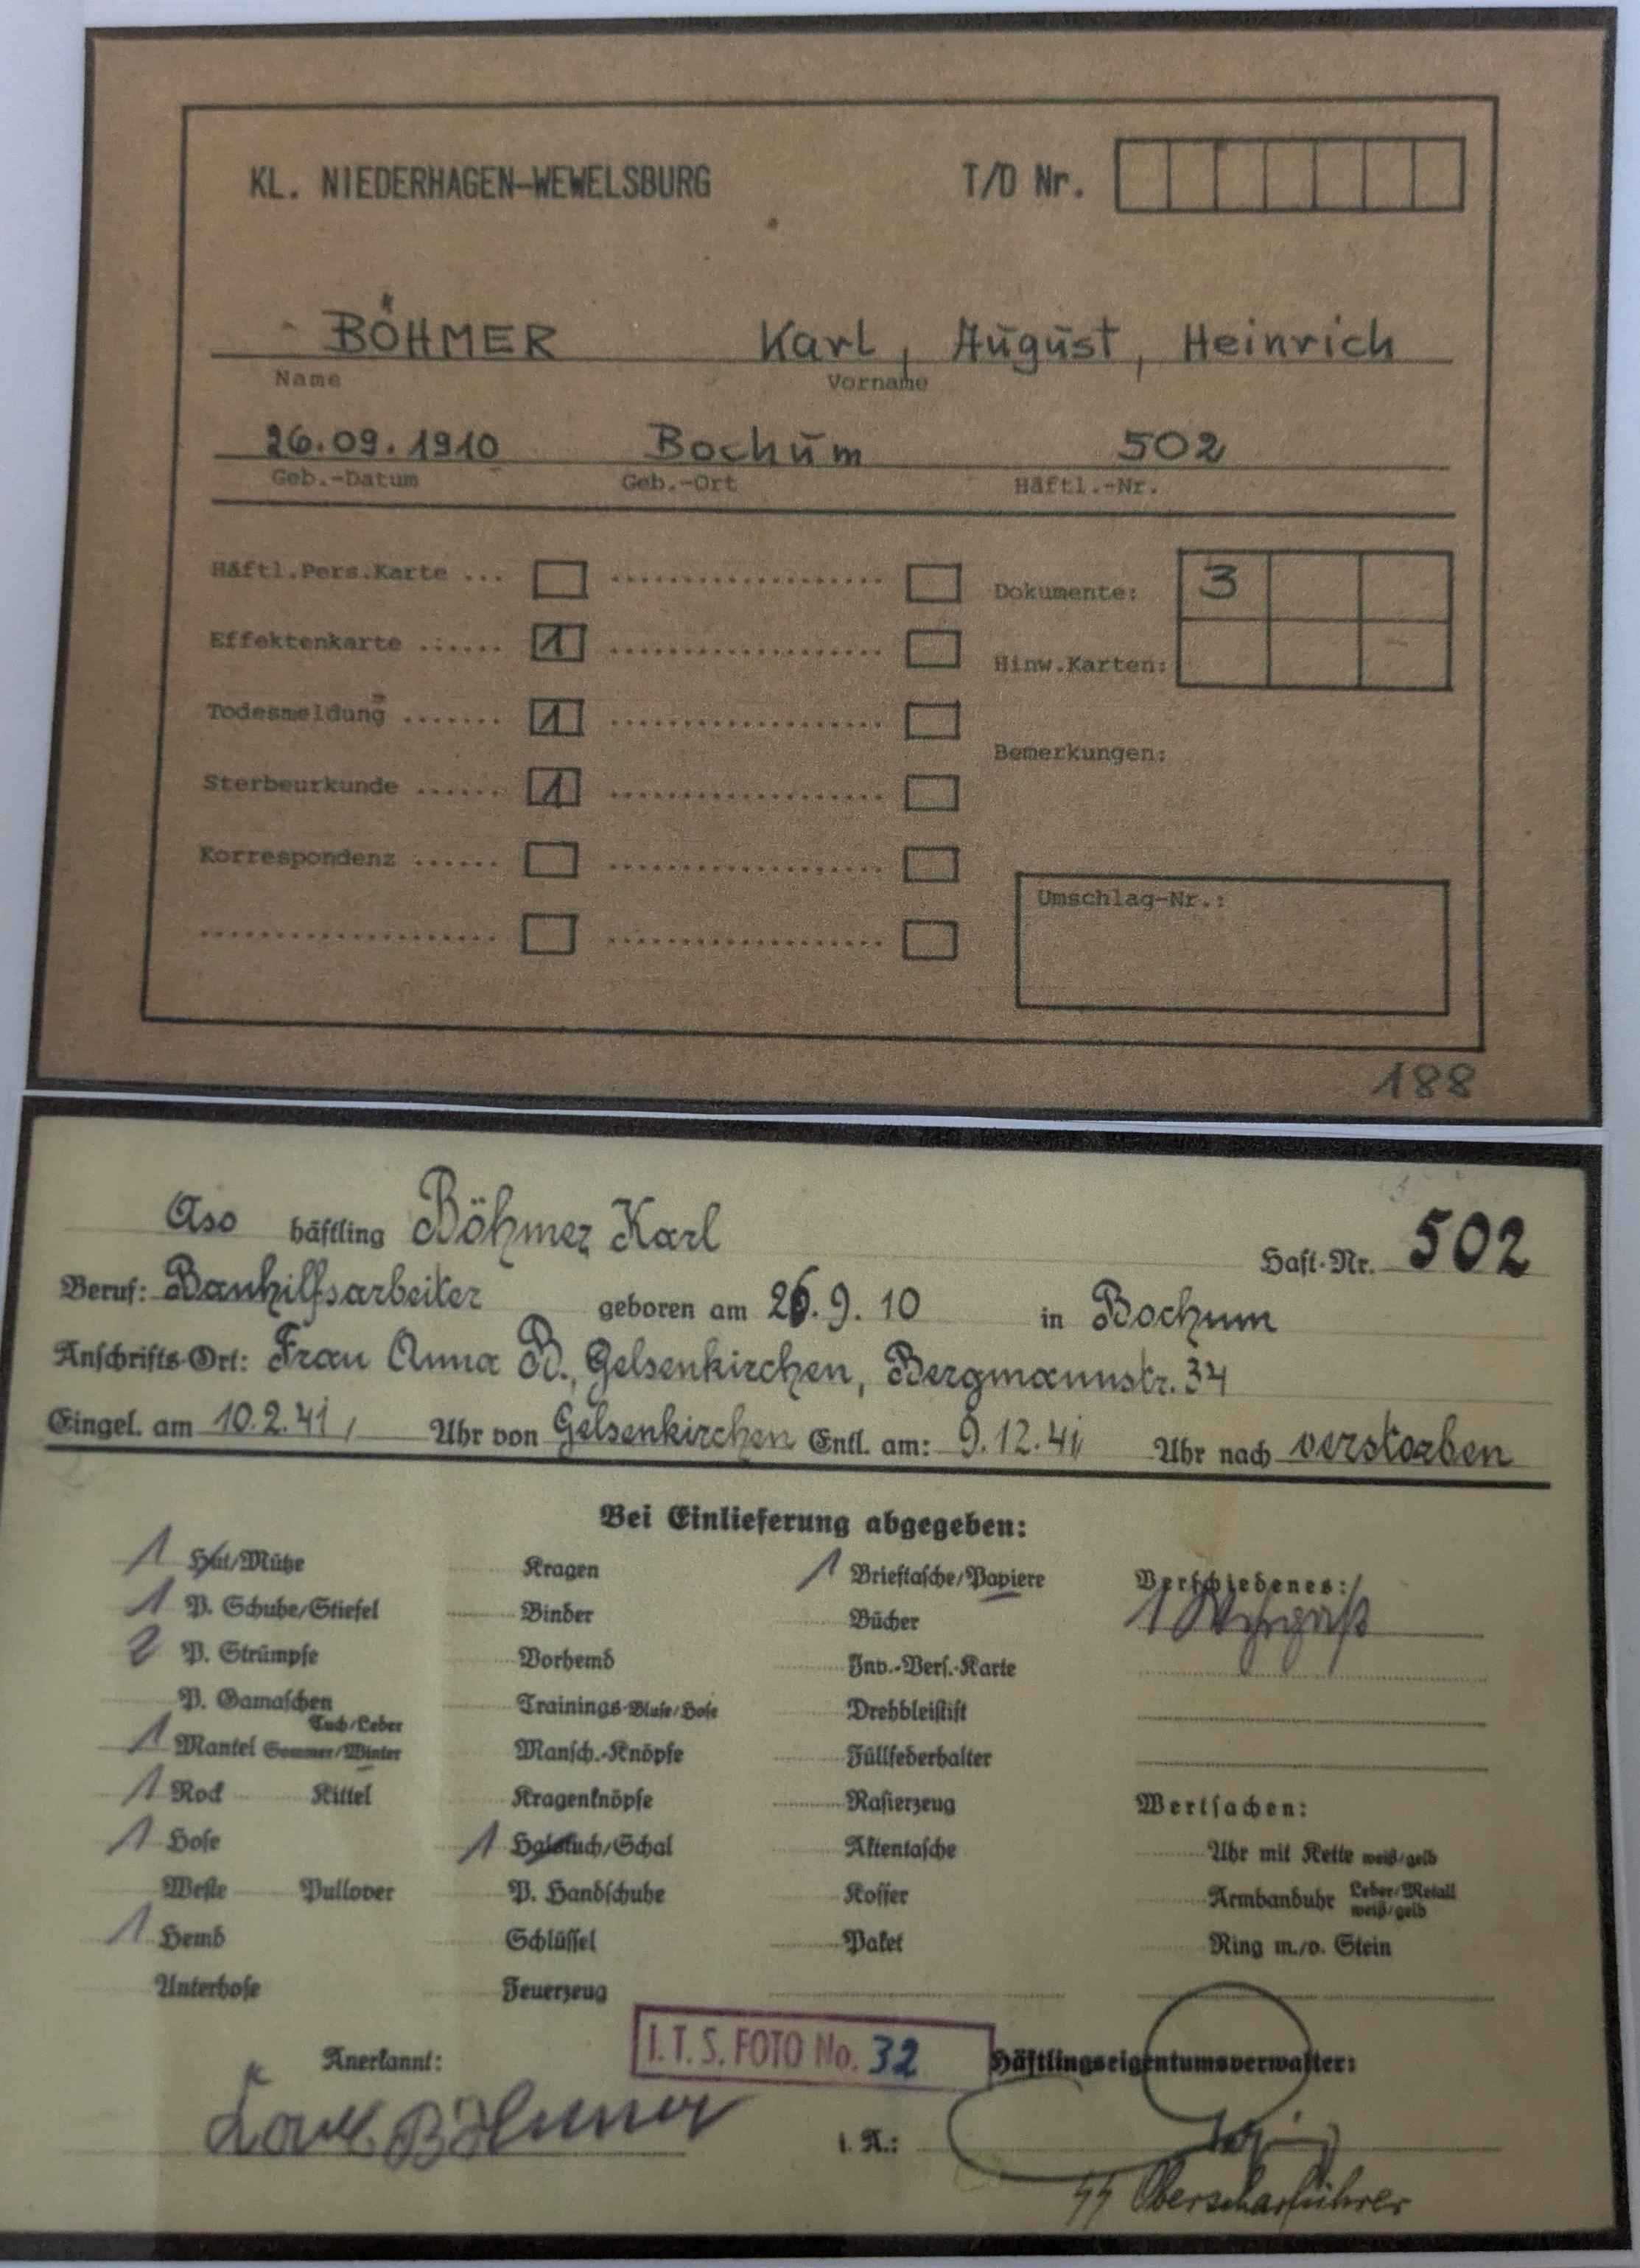 KL. NIEDERHAGEN-WEWELSBURG T/D Nr.
BÖHMER Karl, August, Heinrich
Name Vorname
26.09.1910 Bochum 502
Geb.-Datum Geb.-Ort Häftl.-Nr.
Häftl.Pers.Karte ... Dokumente: 3
Effektenkarte ...... 1 Hinw.Karten:
Todesmeldung ....... 1
Bemerkungen:
Sterbeurkunde ...... 1
Korrespondenz ......
Umschlag-Nr.:
188
Aso häftling Böhmer Karl Haft-Nr. 502
Beruf: Bauhilfsarbeiter geboren am 26.9.10 in Bochum
Anschrifts-Ort: Frau Anna B., Gelsenkirchen, Bergmannstr. 34
Eingel. am 10.2.41, Uhr von Gelsenkirchen Entl. am: 9.12.41 Uhr nach verstorben
Bei Einlieferung abgegeben:
1 Hut/Mütze Kragen 1 Brieftasche/Papiere Verschiedenes:
1 P. Schuhe/Stiefel Binder Bücher 1
2 P. Strümpfe Vorhemd Inv.-Vers.-Karte
P. Gamaschen Tuch/Leder Trainings-Bluse/Hose Drehbleistift
1 Mantel Sommer/Winter Mansch.-Knöpfe Füllfederhalter
1 Rock Kittel Kragenknöpfe Rasierzeug Wertsachen:
1 Hose 1 Halstuch/Schal Aktentasche Uhr mit Kette weiß/gelb
Weste Pullover P. Handschuhe Koffer Armbanduhr Leder/Metall weiß/gelb
1 Hemd Schlüssel Paket Ring m./o. Stein
Unterhose Feuerzeug
I.T.S. FOTO No. 32
Anerkannt: Häftlingseigentumsverwalter:
Karl Böhmer i. A.:
SS Oberscharführer